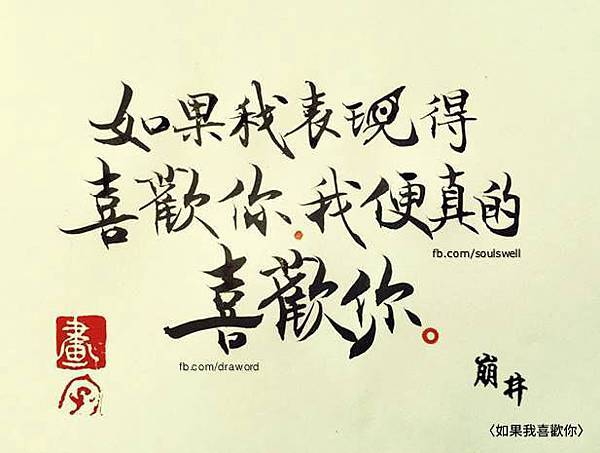 如果我表現得
喜歡你.我便真的
fb.com/soulswell
喜歡你。
fb.com/draword
畫字
崩井
〈如果我喜歡你〉